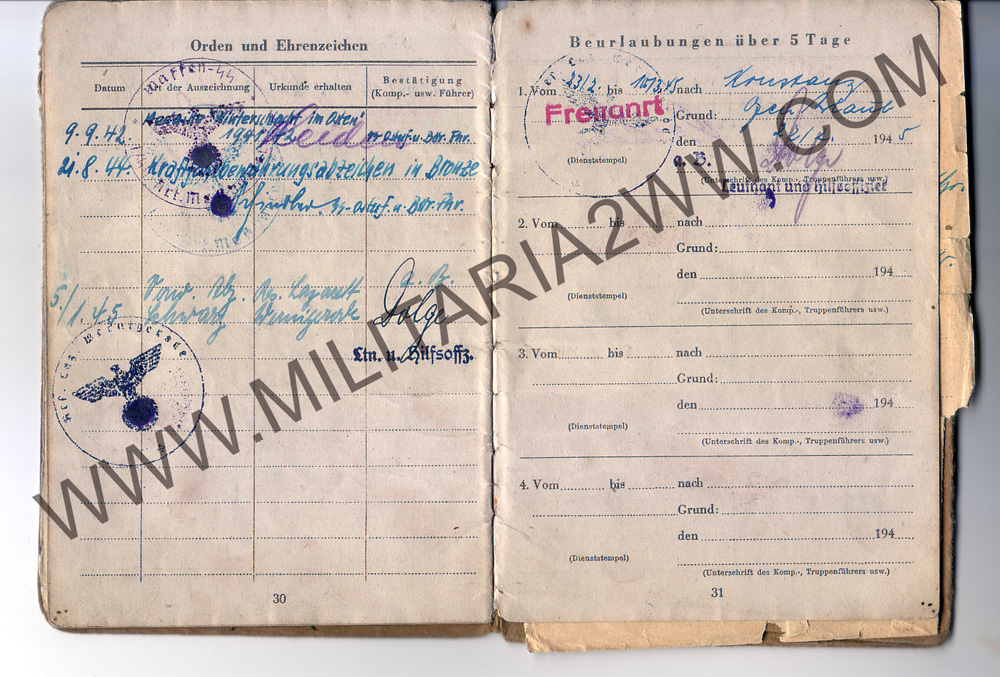 Orden und Ehrenzeichen
Datum
Art der Auszeichnung
Urkunde erhalten
Bestätigung
(Komp.- usw. Führer)
Waffen-SS
9.9.42. "Winterschlacht im Osten"
1941/42
21.8.44. Kraftfahrbewährungsabzeichen in Bronze
Schindler
5/1.45 Verw. Abz. Res. Lazarett
Schwarz Wernigerode
Ltn. u. Hilfsoffz.
30
Beurlaubungen über 5 Tage
1. Vom 23/2. bis 10/3.45 nach Konstanz
Freifahrt
Grund:
den 194 5
(Dienststempel)
(Unterschrift des Komp.-, Truppenführers usw.)
Leutnant und Hilfsoffizier
2. Vom bis nach
Grund:
den 194
(Dienststempel)
(Unterschrift des Komp.-, Truppenführers usw.)
3. Vom bis nach
Grund:
den 194
(Dienststempel)
(Unterschrift des Komp.-, Truppenführers usw.)
4. Vom bis nach
Grund:
den 194
(Dienststempel)
(Unterschrift des Komp.-, Truppenführers usw.)
31
WWW.MILITARIA2WW.COM